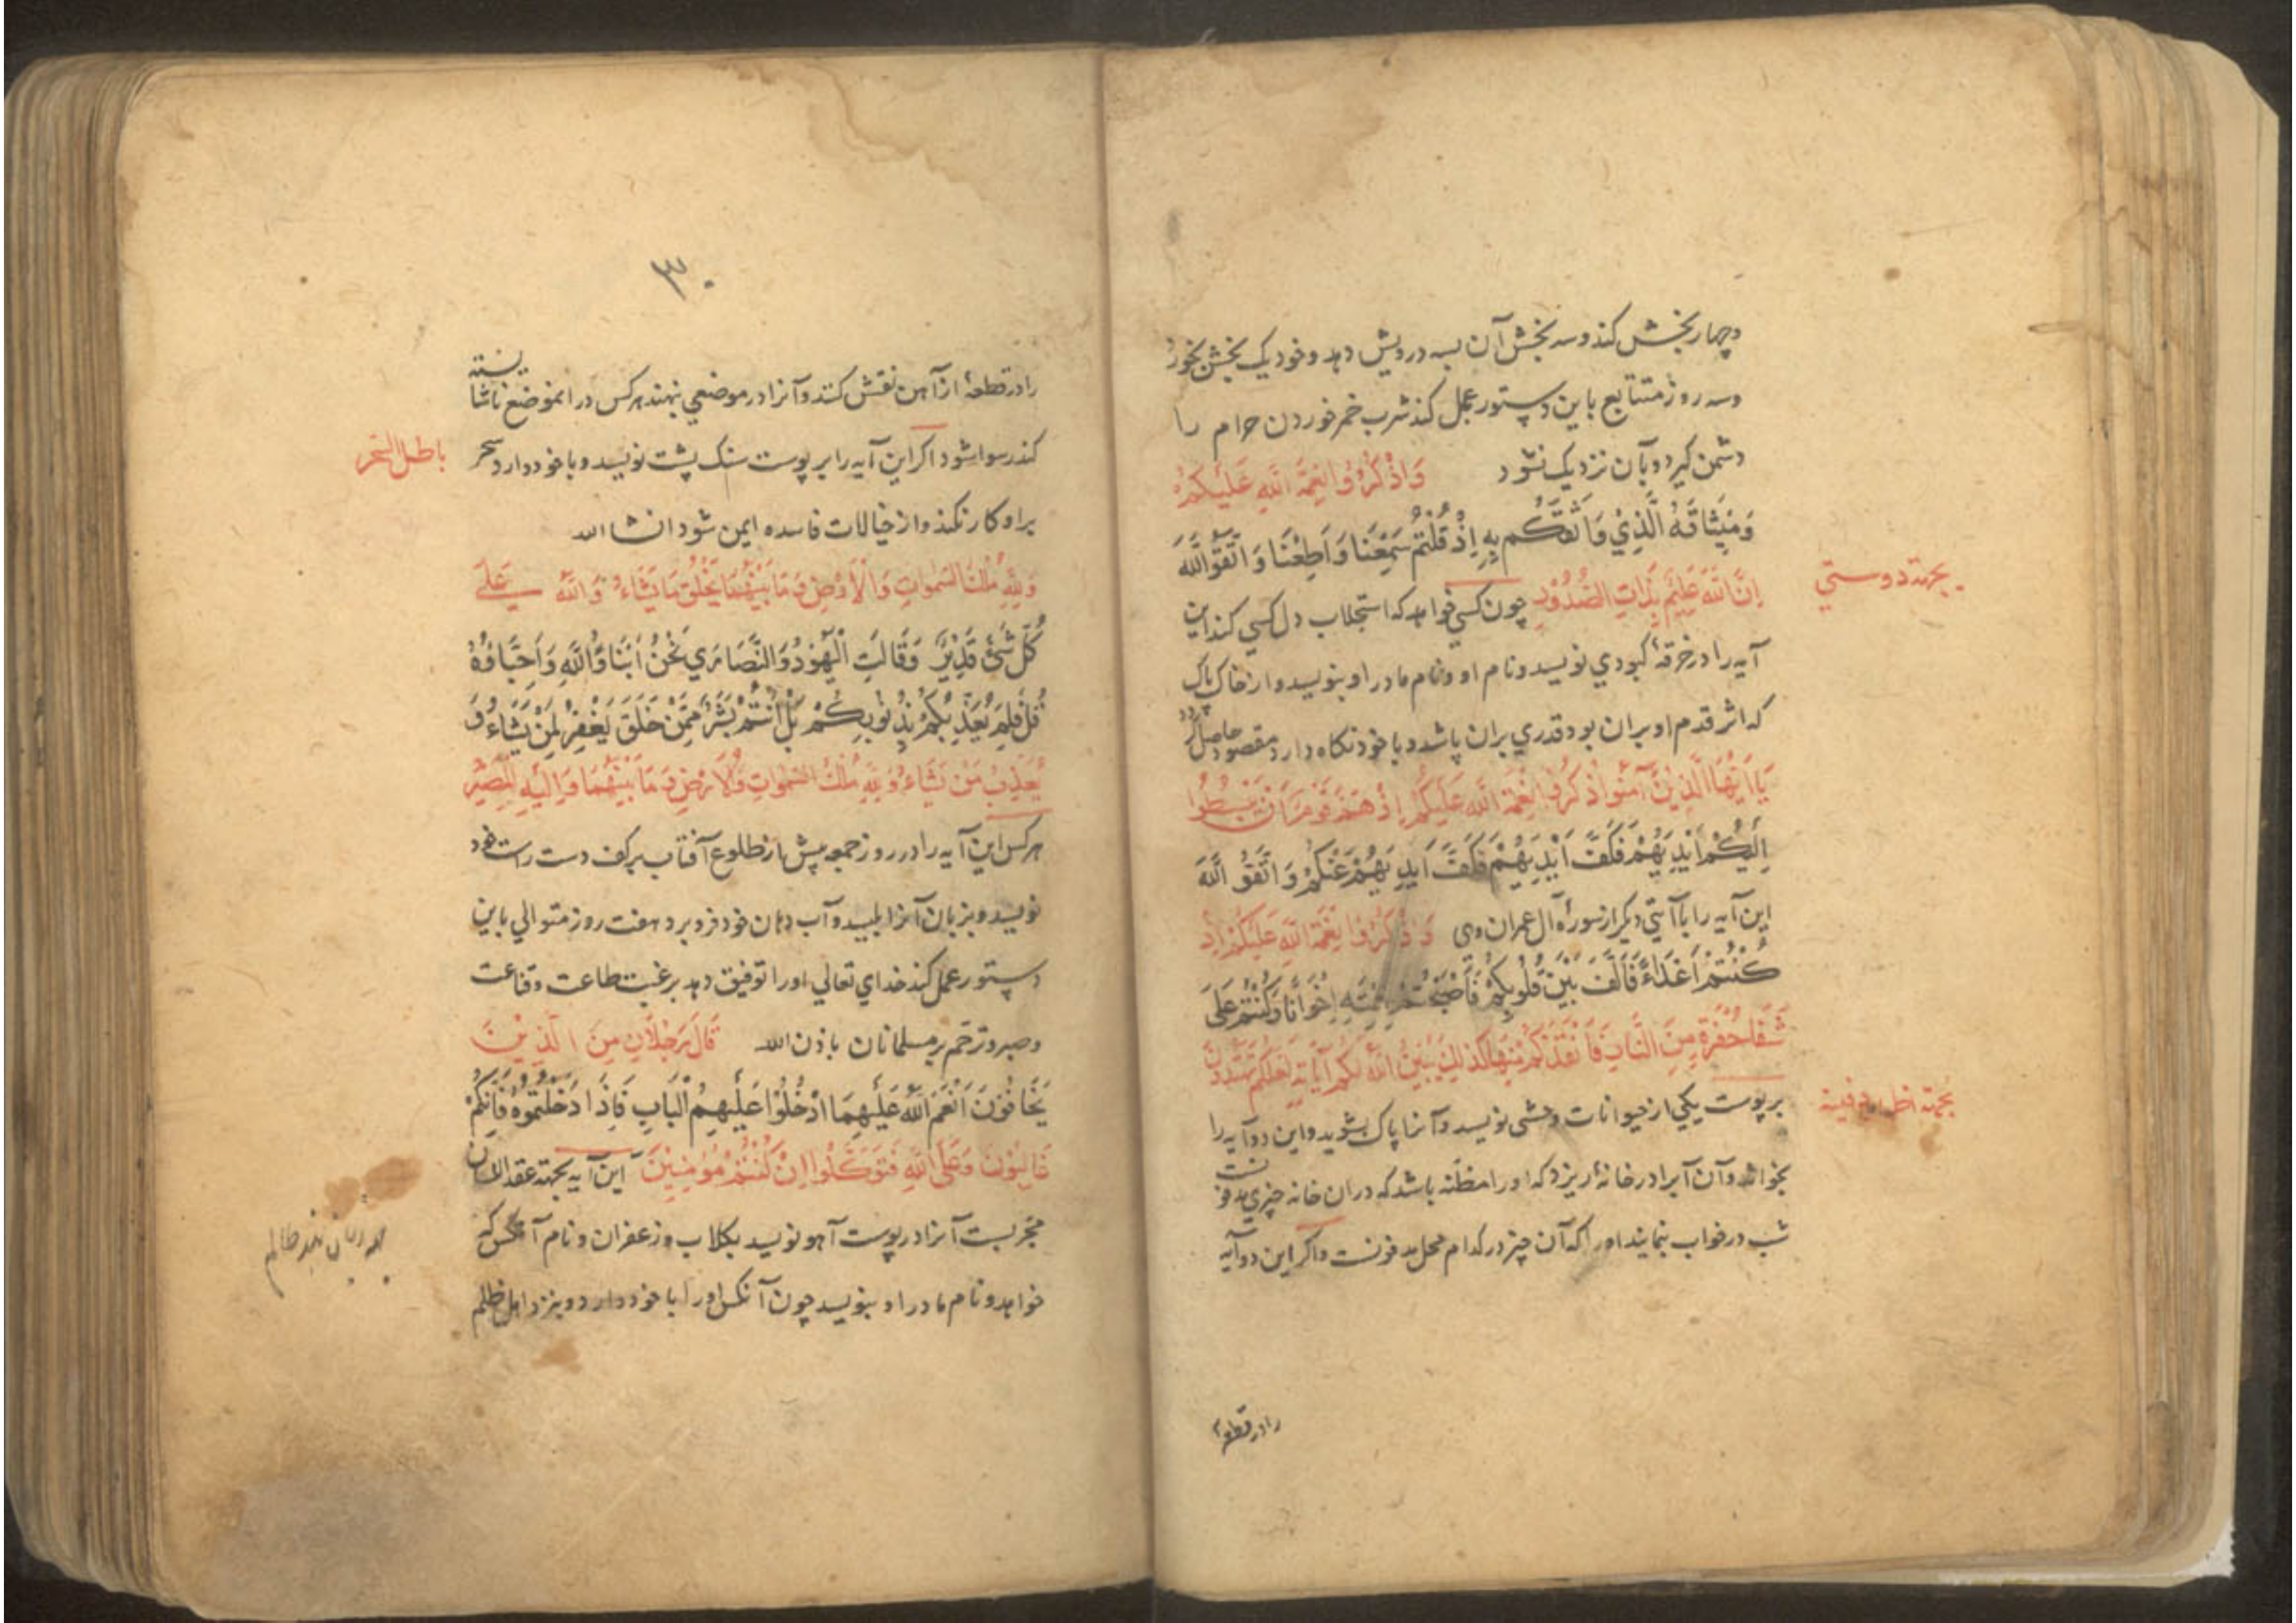 وچهار بخش کند و سه بخش آن بسه درویش دهد و خود یک بخش بخورد
وسه روز متتابع باین دستور عمل کند شرب خمر خوردن حرام را
دشمن کیرد و بآن نزدیک نشود وَاذْكُرُوا نِعْمَةَ اللَّهِ عَلَيْكُمْ
وَمِيثَاقَهُ الَّذِي وَاثَقَكُم بِهِ اِذْ قُلْتُمْ سَمِعْنَا وَاَطَعْنَا وَاتَّقُوا اللَّهَ
اِنَّ اللَّهَ عَلِيمٌ بِذَاتِ الصُّدُورِ چون کسی خواهد که استجلاب دل کسی کند این
بجهة دوستی
آیه را در خرقهٔ کبودی نویسد و نام او و نام مادر او بنویسد و از خاک پاک
که اثر قدم او بران بود قدری بران پاشد و با خود نکاه دارد مقصود حاصل کردد
يَا اَيُّهَا الَّذِينَ آمَنُوا اذْكُرُوا نِعْمَةَ اللَّهِ عَلَيْكُمْ اِذْ هَمَّ قَوْمٌ اَنْ يَبْسُطُوا
اِلَيْكُمْ اَيْدِيَهُمْ فَكَفَّ اَيْدِيَهُمْ فَكَفَّ اَيْدِيَهُمْ عَنْكُمْ وَاتَّقُوا اللَّهَ
این آیه را باآیتی دیکر از سوره آل عمران وهی وَاذْكُرُوا نِعْمَةَ اللَّهِ عَلَيْكُمْ اِذْ
كُنْتُمْ اَعْدَاءً فَاَلَّفَ بَيْنَ قُلُوبِكُمْ فَاَصْبَحْتُمْ بِنِعْمَتِهِ اِخْوَانًا وَكُنْتُمْ عَلَى
شَفَا حُفْرَةٍ مِنَ النَّارِ فَاَنْقَذَكُمْ مِنْهَا كَذَلِكَ يُبَيِّنُ اللَّهُ لَكُمْ آيَاتِهِ لَعَلَّكُمْ تَهْتَدُونَ
بر پوست یکی از حیوانات وحشی نویسد و آنرا پاک بشوید و این دو آیه را
بجهة اظهار دفینه
بخواند و آن آبرا در خانهٔ ریزد که اورا مظنه باشد که دران خانه چیزی مدفونست
شب در خواب بنمایند اورا که آن چیز در کدام محل مدفونست و اکر این دو آیه
را در قطعهٔ
۳۰
را در قطعهٔ از آهن نقش کنند و آنرا در موضعی نهند هرکس در انموضع ناشایسته
کند رسوا شود اکر این آیه را بر پوست سنک پشت نویسد و با خود دارد سحر
باطل السحر
براو کار نکند و از خیالات فاسده ایمن شود انشا الله
وَلِلَّهِ مُلْكُ السَّمٰوَاتِ وَالْاَرْضِ وَمَا بَيْنَهُمَا يَخْلُقُ مَا يَشَاءُ وَاللَّهُ عَلَى
كُلِّ شَيْءٍ قَدِيرٌ وَقَالَتِ الْيَهُودُ وَالنَّصَارَي نَحْنُ اَبْنَاؤُ اللَّهِ وَاَحِبَّاؤُهُ
قُلْ فَلِمَ يُعَذِّبُكُمْ بِذُنُوبِكُمْ بَلْ اَنْتُمْ بَشَرٌ مِمَّنْ خَلَقَ يَغْفِرُ لِمَنْ يَشَاءُ وَ
يُعَذِّبُ مَنْ يَشَاءُ وَلِلَّهِ مُلْكُ السَّمٰوَاتِ وَالْاَرْضِ وَمَا بَيْنَهُمَا وَاِلَيْهِ الْمَصِيرُ
هرکس این آیه را در روز جمعه پیش از طلوع آفتاب برکف دست راست خود
نویسد و بزبان آنرا بلیسد و آب دهان خود فرو برد هفت روز متوالی باین
دستور عمل کند خدای تعالی اورا توفیق دهد بر رغبت طاعت و قناعت
وصبر و ترحم بر مسلمانان باذن الله قَالَ رَجُلَانِ مِنَ الَّذِينَ
يَخَافُونَ اَنْعَمَ اللَّهُ عَلَيْهِمَا ادْخُلُوا عَلَيْهِمُ الْبَابَ فَاِذَا دَخَلْتُمُوهُ فَاِنَّكُمْ
غَالِبُونَ وَعَلَى اللَّهِ فَتَوَكَّلُوا اِنْ كُنْتُمْ مُؤْمِنِينَ این آیه بجهة عقد اللسان
مجربست آنرا در پوست آهو نویسد بکلاب و زعفران و نام آنکس که
خواهد و نام مادر او بنویسد چون آنکس اورا با خود دارد و بنزد اهل ظلم